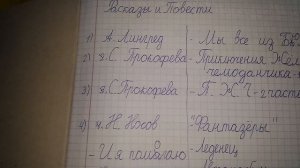 Рассказы и Повести
1) А. Лингред - Мы все из
2) С. Прокофева - Приключения Жёл
чемоданчика
3) С. Прокофева - П. Ж. Ч - 2 части
4) Н. Носов "Фантазёры"
- И я помогаю - Леденец